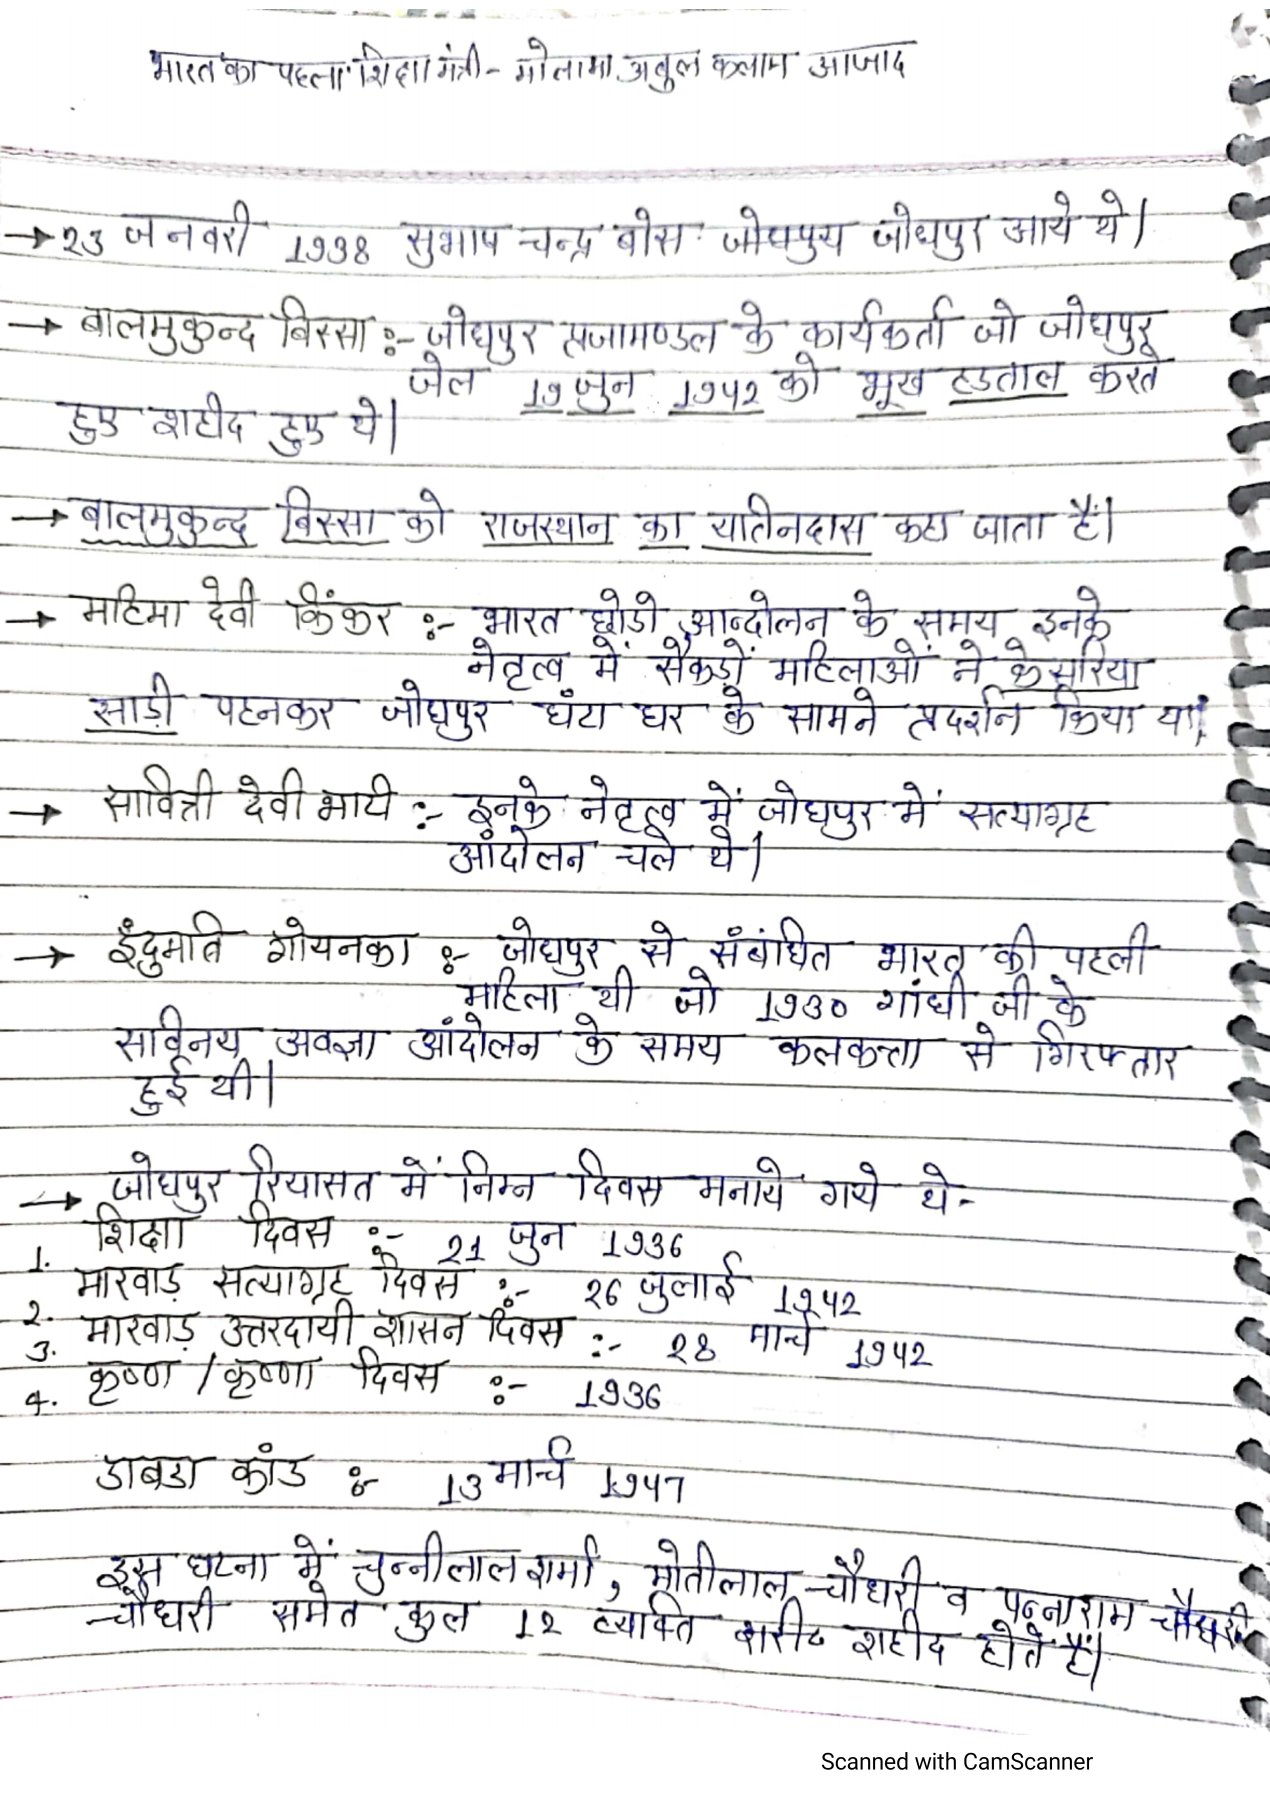 भारत का पहला शिक्षा मंत्री - मोलामा अबुल कलाम आजाद
→ 23 जनवरी 1938 सुभाष चन्द्र बोस जोधपुर जोधपुर आये थे।
→ बालमुकुन्द बिस्सा :- जोधपुर प्रजामण्डल के कार्यकर्ता जो जोधपुर
जेल 19 जुन 1942 को भूख हडताल करते
हुए शहीद हुए थे।
→ बालमुकुन्द बिस्सा को राजस्थान का यातीनदास कहा जाता हैं।
→ महिमा देवी किंकर :- भारत छोडो आन्दोलन के समय इनके
नेतृत्व में सैकड़ों महिलाओं ने केसरिया
साड़ी पहनकर जोधपुर घंटा घर के सामने प्रदर्शन किया था।
→ सावित्री देवी भाटी :- इनके नेतृत्व में जोधपुर में सत्याग्रह
आंदोलन चले थे।
→ इंदुमति गोयनका :- जोधपुर से संबंधित भारत की पहली
महिला थी जो 1930 गांधी जी के
सविनय अवज्ञा आंदोलन के समय कलकत्ता से गिरफ्तार
हुई थी।
→ जोधपुर रियासत में निम्न दिवस मनाये गये थे -
1. शिक्षा दिवस :- 21 जुन 1936
2. मारवाड़ सत्याग्रह दिवस :- 26 जुलाई 1942
3. मारवाड़ उत्तरदायी शासन दिवस :- 28 मार्च 1942
4. कृष्ण / कृष्णा दिवस :- 1936
डाबडा कांड :- 13 मार्च 1947
इस घटना में चुन्नीलाल शर्मा, मोतीलाल चौधरी व पन्नाराम चौधरी
चौधरी समेत कुल 12 व्यक्ति शहीद होते हैं।
Scanned with CamScanner